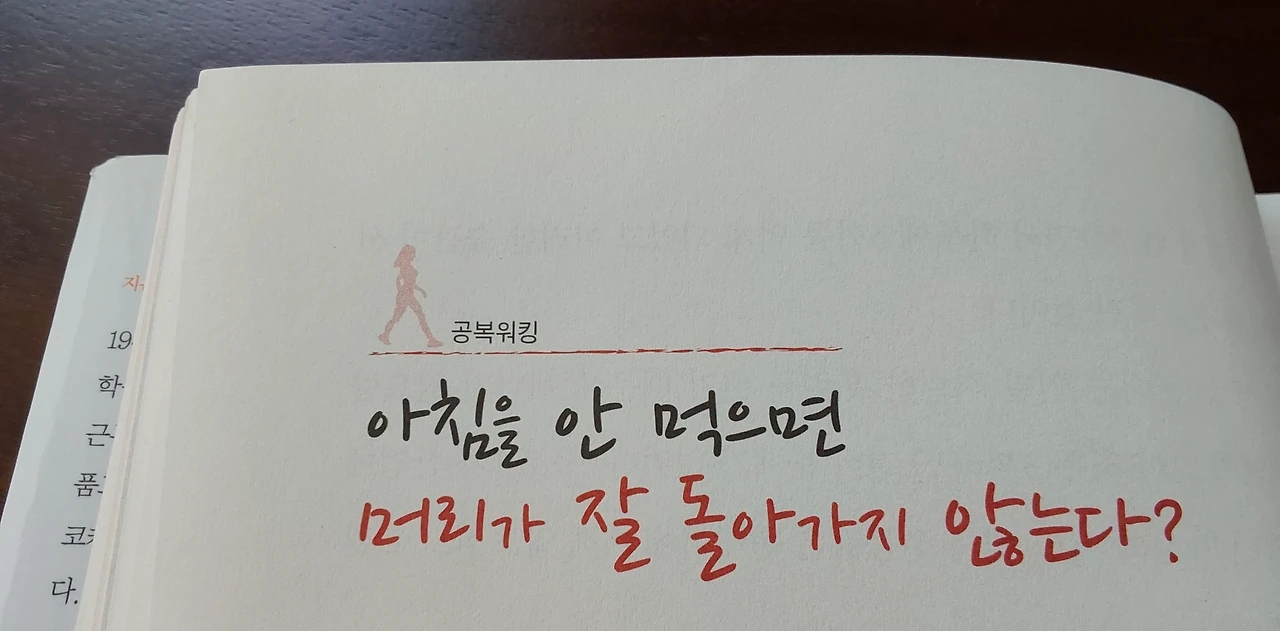 공복워킹
아침을 안 먹으면
머리가 잘 돌아가지 않는다?
지
19
학
근
품
코카
다.